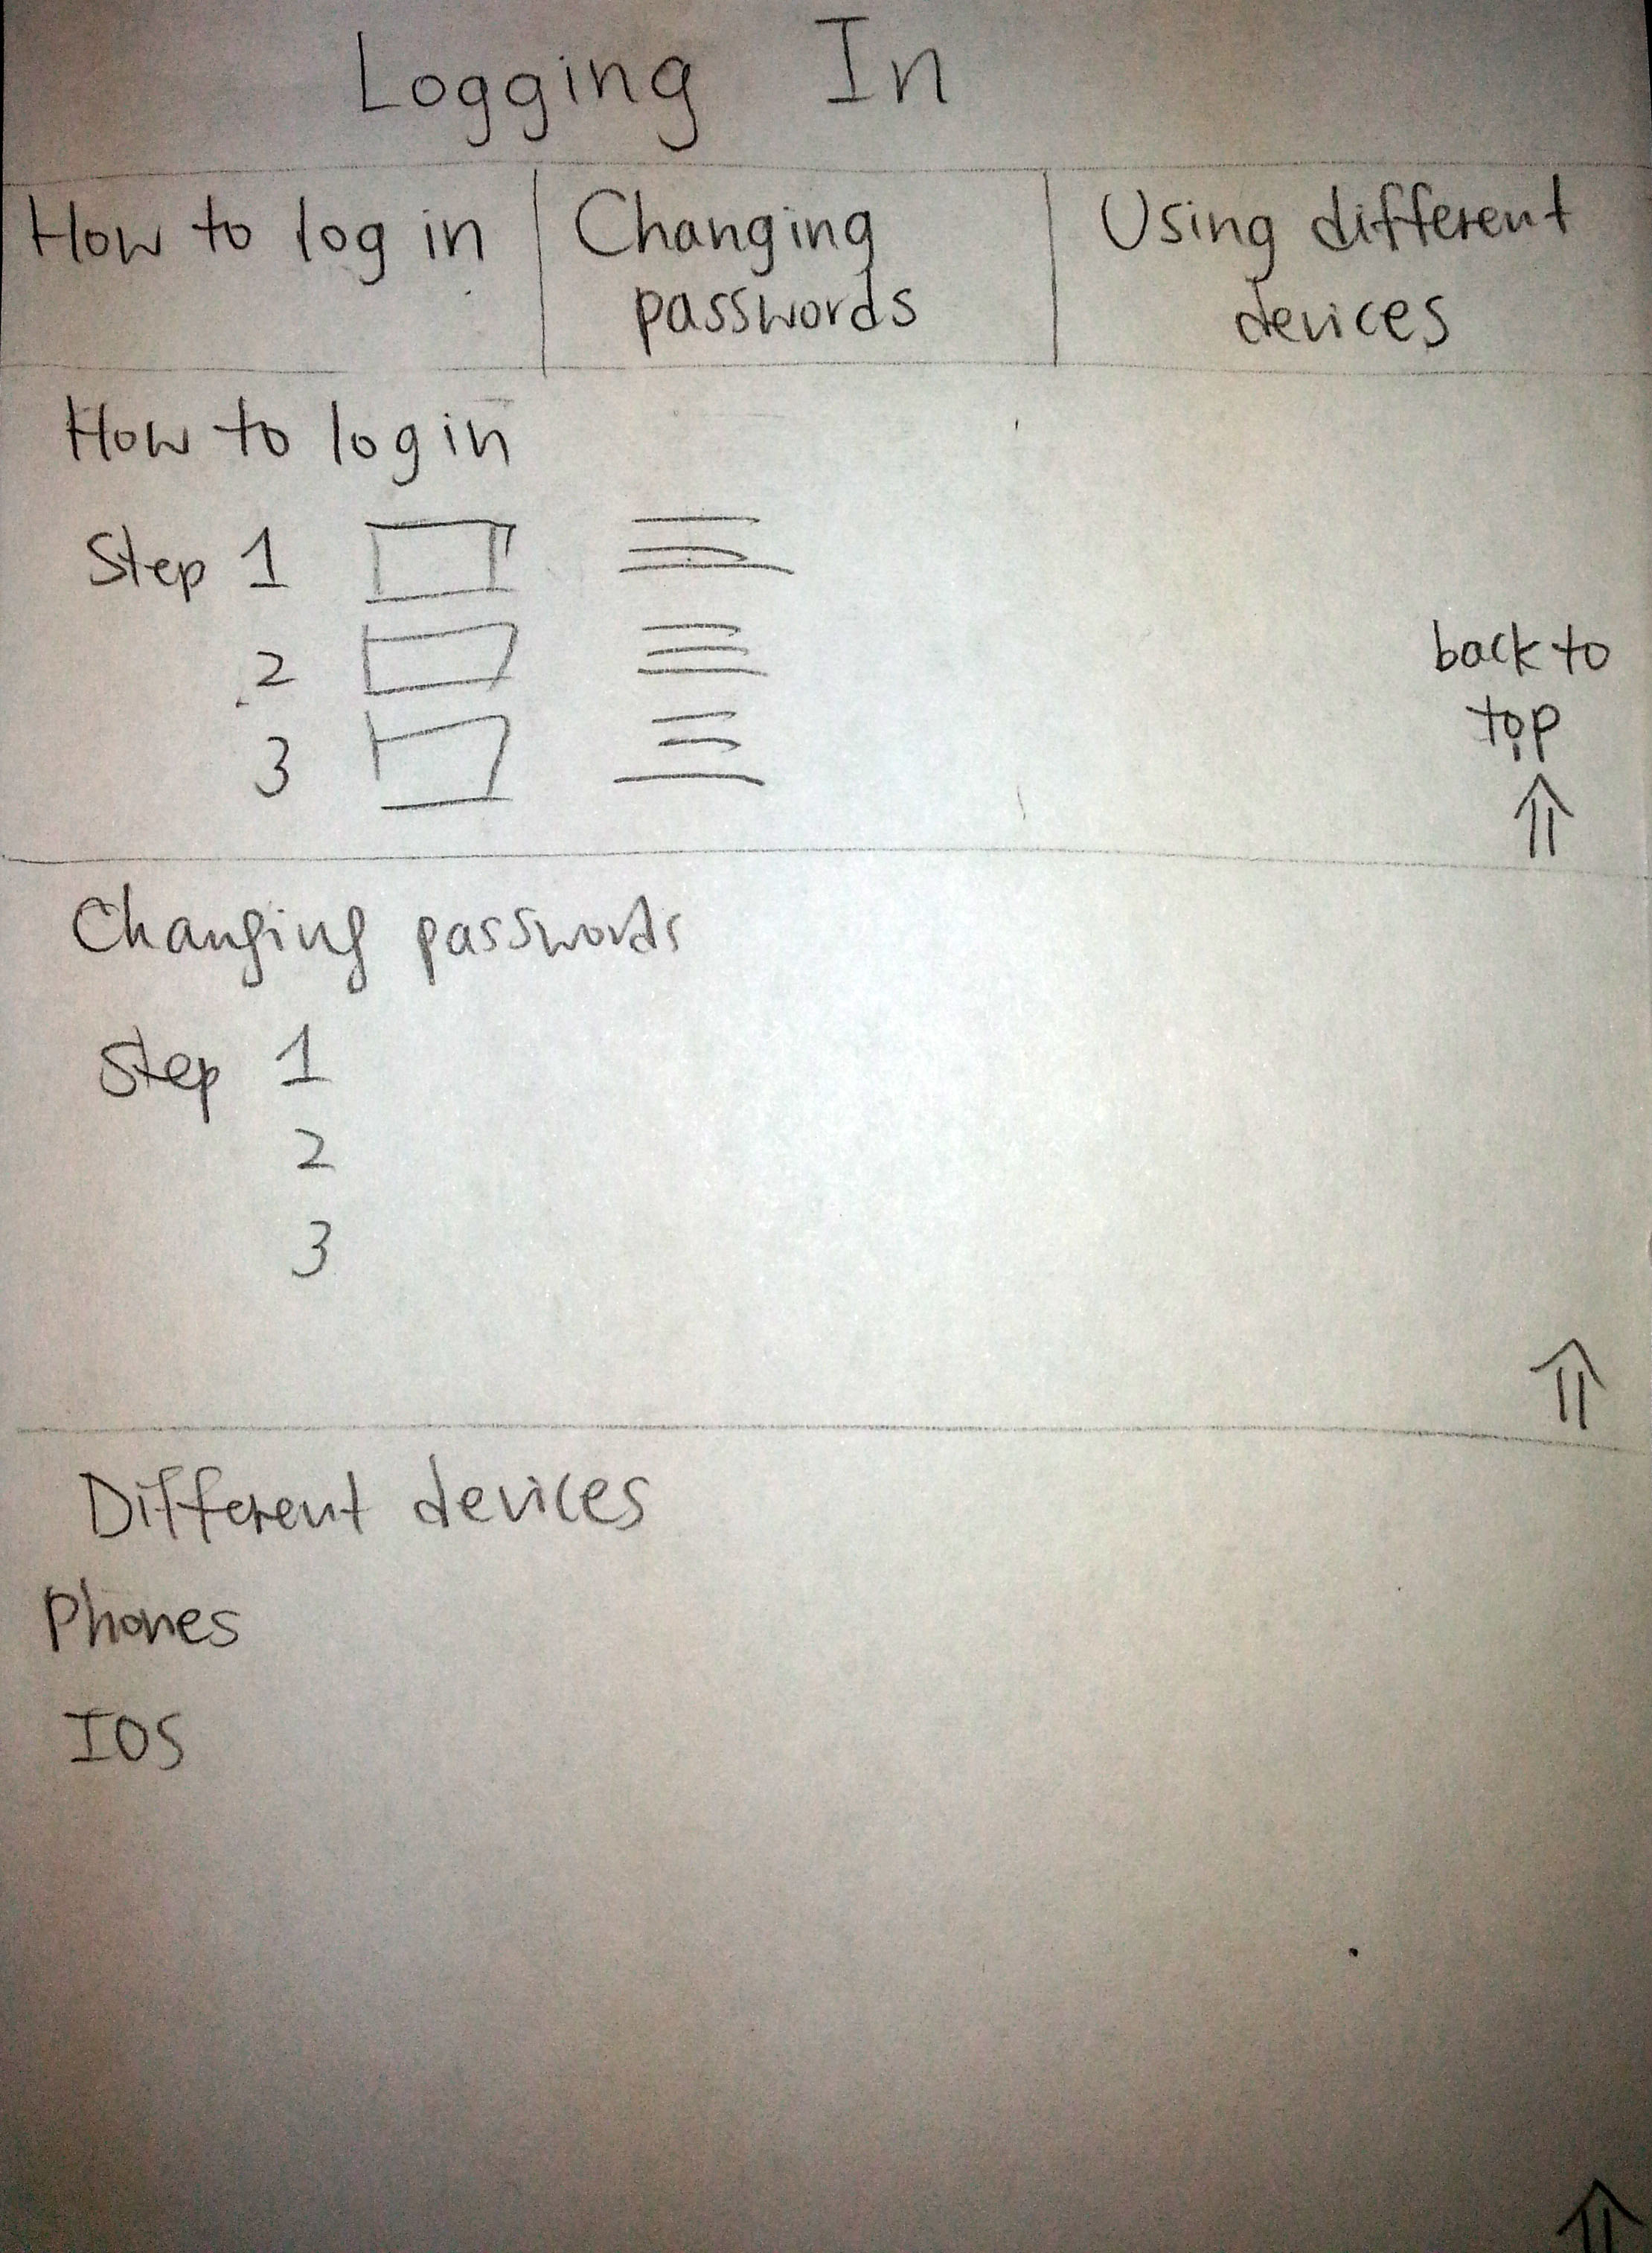 Logging In
How to log in
Changing
passwords
Using different
devices
How to log in
Step 1
2
3
back to
top
Changing passwords
Step 1
2
3
Different devices
Phones
IOS